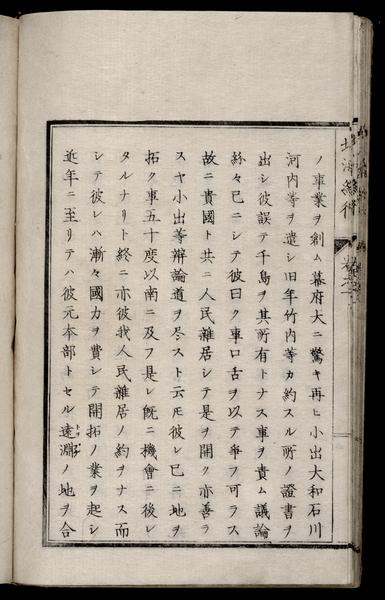 ノ事業ヲ創ム幕府大ニ驚キ再ヒ小出大和石川
河内等ヲ遣シ旧年竹内等カ約スル所ノ證書ヲ
出シ彼誤テ千島ヲ其所有トナス事ヲ責ム議論
紛々已ニシテ彼曰ク事口舌ヲ以テ爭フ可ラス
故ニ貴國ト共ニ人民雜居シテ是ヲ開ク亦善ラ
スヤ小出等辯論道ヲ尽スト云𪜈彼レ已ニ地ヲ
拓ク事五十度以南ニ及フ是レ既ニ機會ニ後レ
タルナリト終ニ亦彼我人民雜居ノ約ヲナス而
シテ彼レハ漸々國力ヲ費シテ開拓ノ業ヲ起シ
近年ニ至リテハ彼元本部トセル遠淵ノ地ヲ合